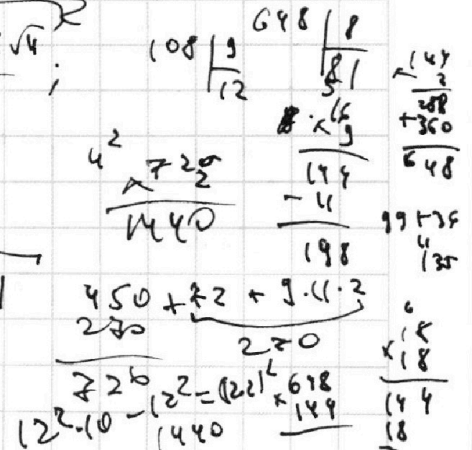 √4
;
108 | 9
12
648 | 8
81
144
2
288
+360
648
× 16
9
144
198
4²
× 720
2
1440
99+36
135
450 + 72 + 9·11·2
270
270
720
12²·10 - 12² = (12)²
1440
× 648
144
× 18
18
144
18